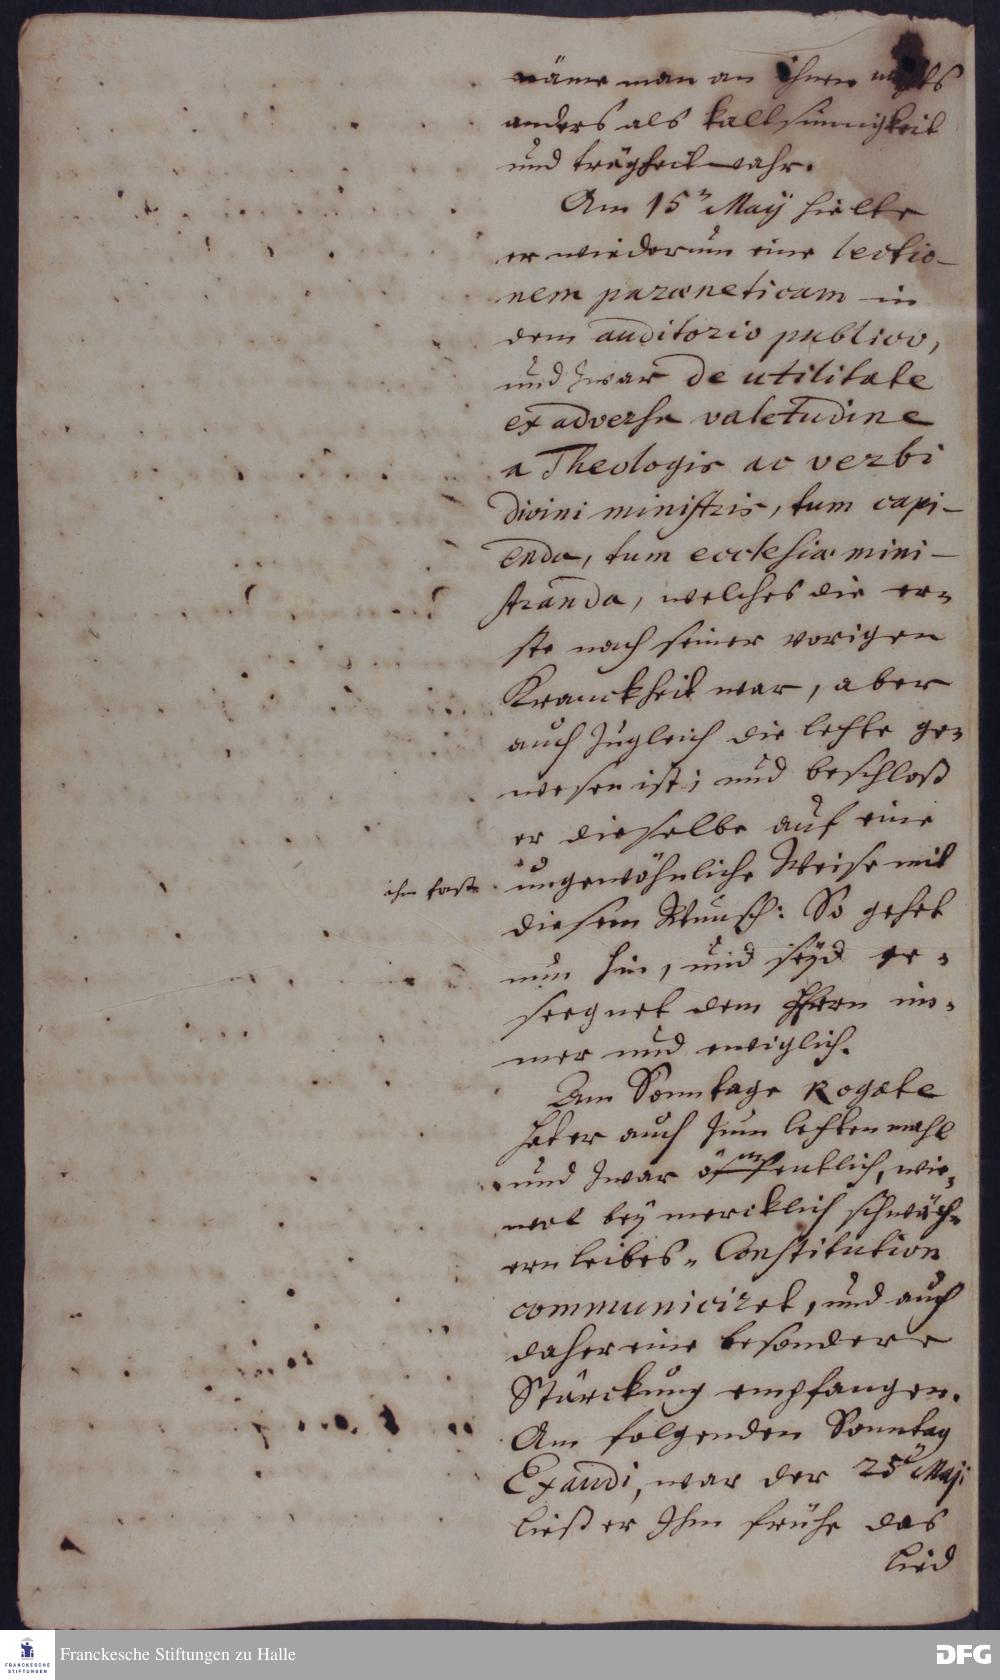 näme man an ihnen nichts
anders als kaltsinnigkeit
und trägheit wahr.
Am 15ⁿ Maÿ hielte
er wiederum eine lectio-
nem paræneticam in
dem auditorio publico,
und zwar de utilitate
ex adversa valetudine
a Theologis ac verbi
divini ministris, tum capi-
enda, tum ecclesiæ mini-
stranda, welches die er-
ste nach seiner vorigen
Kranckheit war, aber
auch zugleich die letzte ge-
wesen ist; und beschloß
er dieselbe auf eine
ihm fast
ungewöhnliche Weise mit
diesem Wunsch: So gehet
nun hin, und seÿd ge-
seegnet dem HErrn im-
mer und ewiglich.
Am Sonntage Rogate
hat er auch zum letzten mahl
und zwar öffentlich, wie-
wol beÿ mercklich schwäch-
ern leibes-Constitution
communiciret, und auch
daher eine besondere
Stärckung empfangen.
Am folgenden Sonntag
Exaudi, war der 25ⁿ Maji
ließ er Ihm frühe das
Lied
Franckesche Stiftungen zu Halle
FRANCKESCHE
STIFTUNGEN
DFG